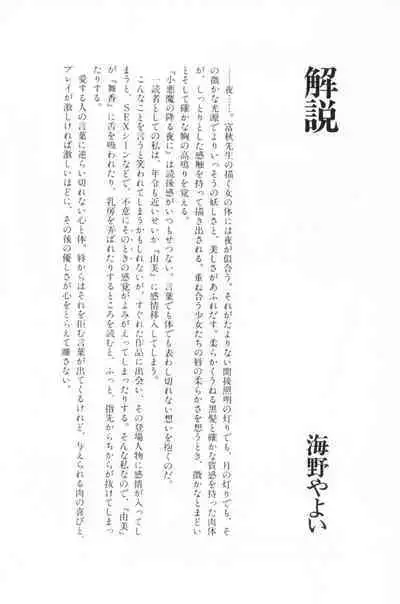 解説
海野やよい
──夜……。富秋先生の描く女の体には夜が似合う。それがたよりない間接照明の灯りでも、月の灯りでも、そ
の微かな光源でよりいっそうの妖しさと、美しさがあふれだす。柔らかくうねる黒髪と確かな質感を持った肉体
が、しっとりとした感触を持って描き出される。重ね合う少女たちの唇の柔らかさを想うとき、微かなとまどい
とそして確かな胸の高鳴りを覚える。
『小悪魔の降る夜に』は読後感がいつもせつない。言葉でも体でも表わし切れない想いを抱くのだ。
一読者としての私は、年令も近いせいか『由美』に感情移入してしまう。
こんなことを言うと笑われてしまうかもしれないが、すぐれた作品に出会い、その登場人物に感情が入ってし
まうと、SEXシーンなどで、不意にそのときの感覚がよみがえってしまったりする。そんな私なので、『由美』
が『舞香』に舌を吸われたり、乳房を弄ばれたりするところを読むと、ふっと、指先からちからが抜けてしまっ
たりする。
愛する人の言葉に逆らい切れない心と体、唇からはそれを拒む言葉が出てくるけれど、与えられる肉の喜びと、
プレイが激しければ激しいほどに、その後の優しさが心をとらえて離さない。